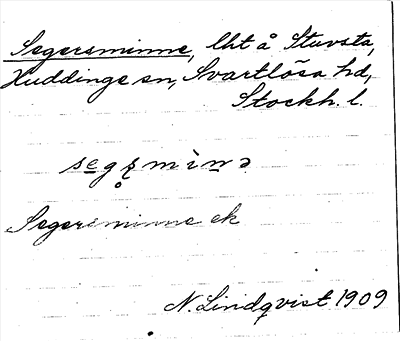 Segersminne, lht å Stuvsta,
Huddinge sn, Svartlösa hd,
Stockh. l.
Segersminne ek
N. Lindqvist 1909